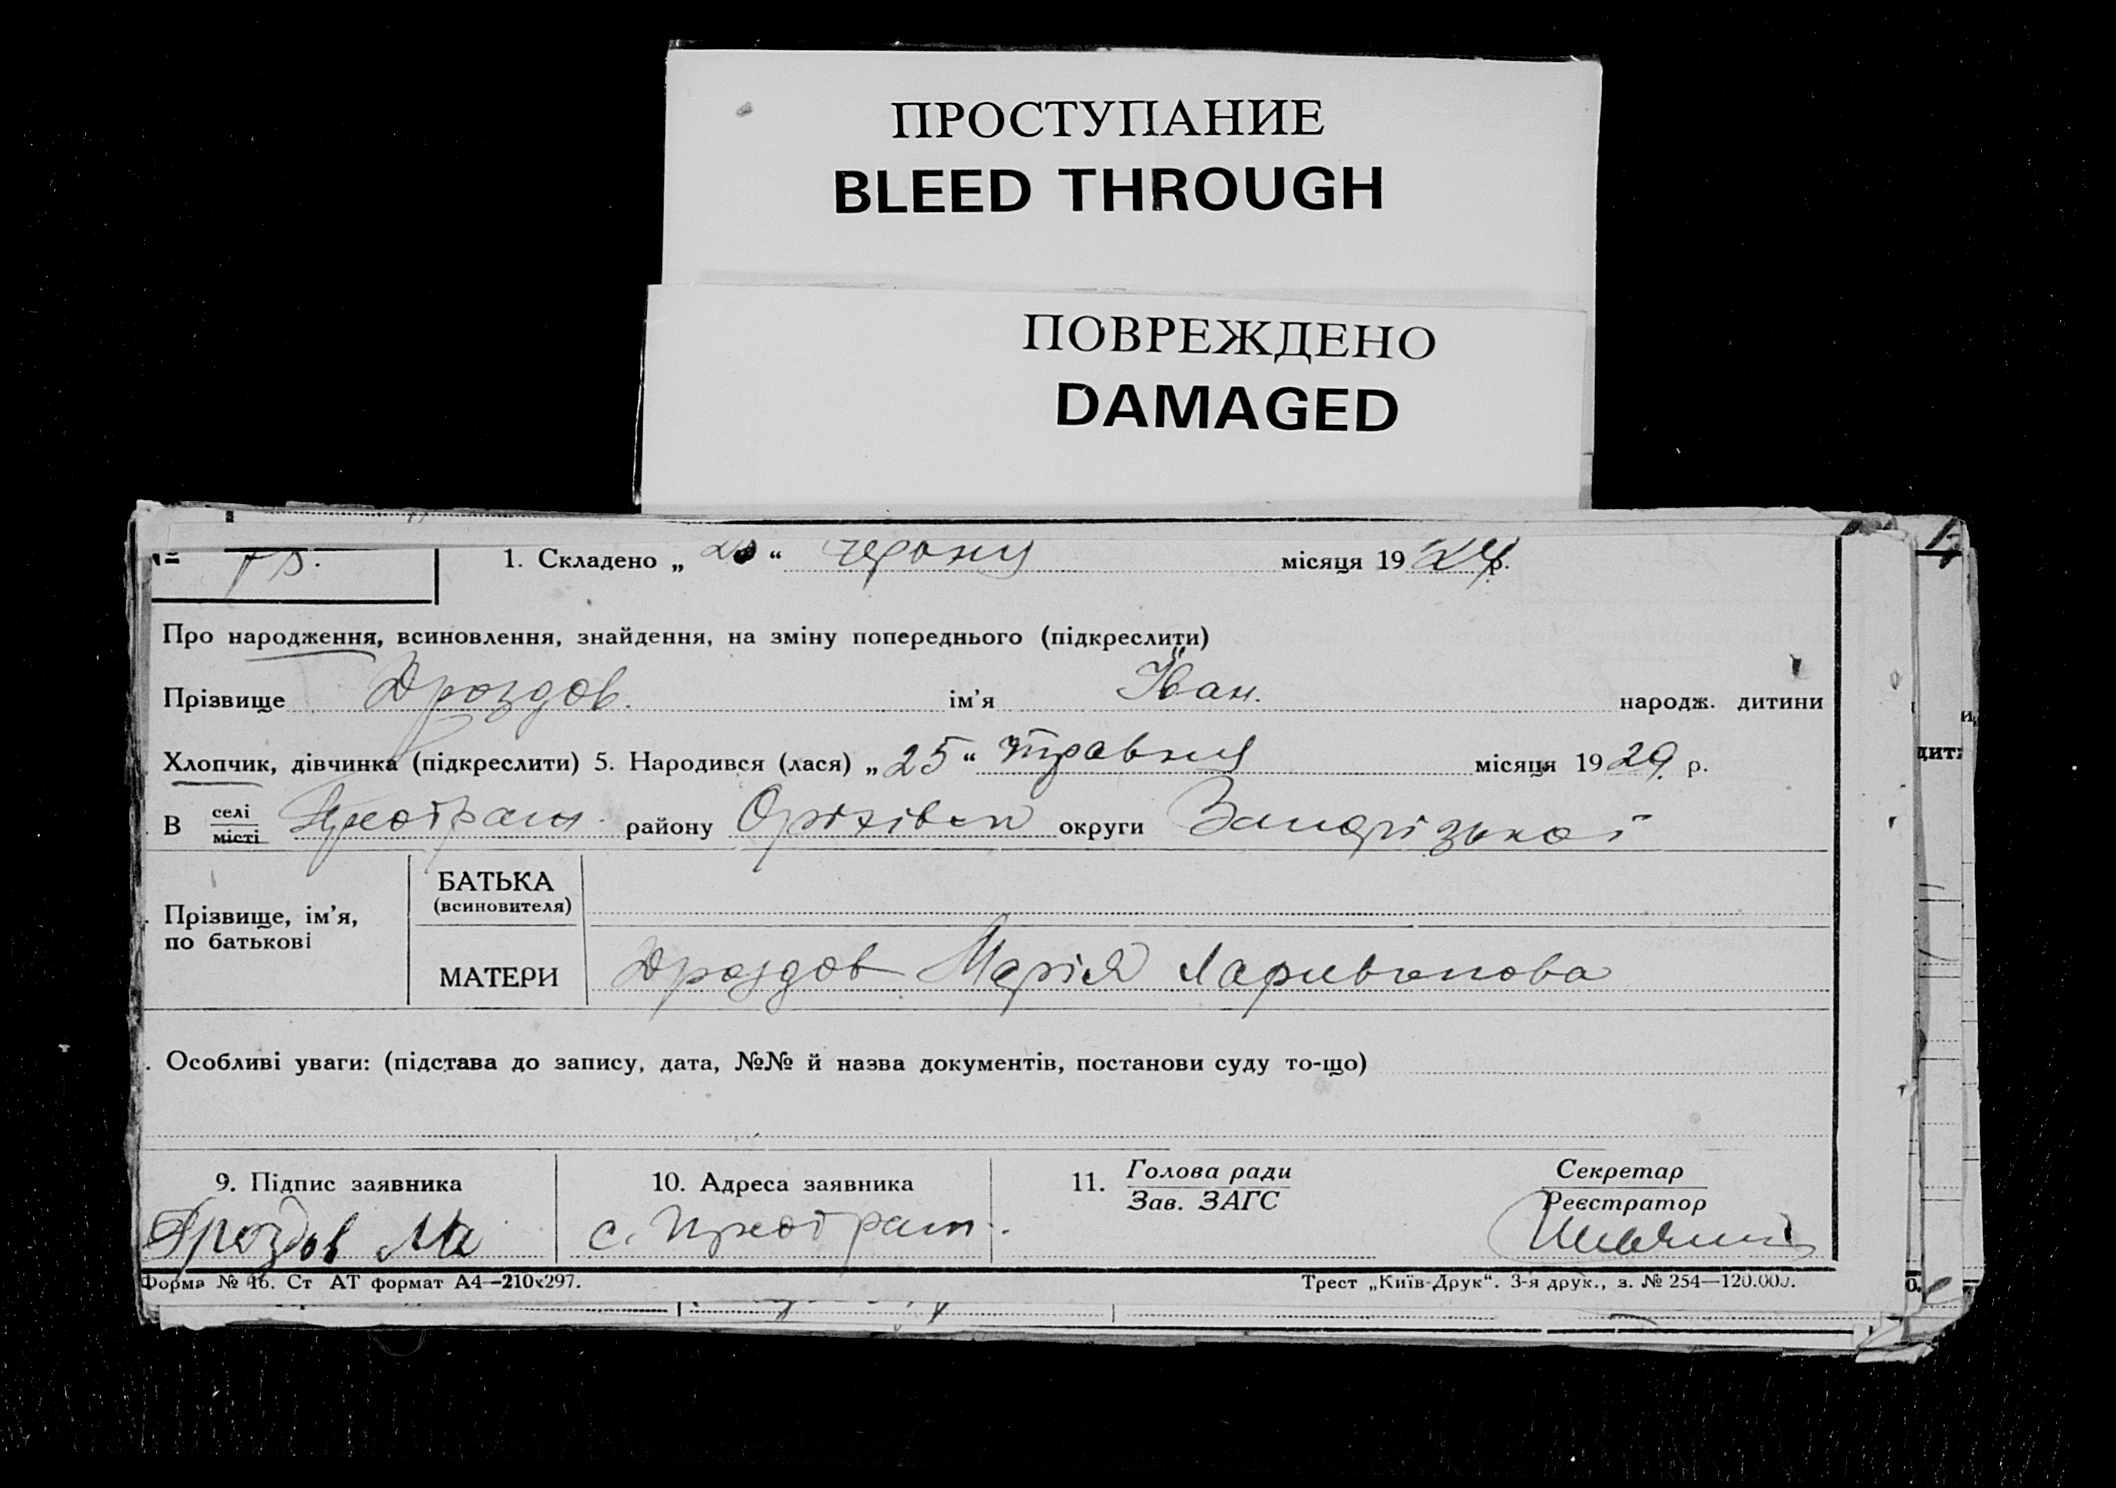 ПРОСТУПАНИЕ
BLEED THROUGH
ПОВРЕЖДЕНО
DAMAGED
1. Складено „ “ Червня місяця 1929 р.
Про народження, всиновлення, знайдення, на зміну попереднього (підкреслити)
Прізвище Дроздов. ім’я Іван. народж. дитини
Хлопчик, дівчинка (підкреслити) 5. Народився (лася) „25“ травня місяця 1929 р.
В селі місті району Оріхівск округи Запорізької
БАТЬКА
(всиновителя)
Прізвище, ім’я,
по батькові
МАТЕРИ Дроздов Марія
Особливі уваги: (підстава до запису, дата, №№ й назва документів, постанови суду то-що)
9. Підпис заявника 10. Адреса заявника 11. Голова ради Секретар
Зав. ЗАГС Реєстратор
Дроздов с.
Форма № 46. Ст АТ формат А4—210х297. Трест „Київ-Друк“. 3-я друк., з. № 254—120.000.